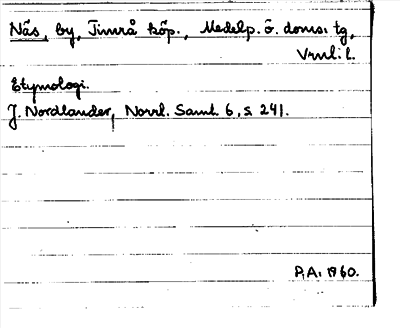 Näs, by, Timrå köp., Medelp. ö. doms. tg,
Vrnl. l.
Etymologi.
J. Nordlander, Norrl. Saml. 6, s. 241.
P.A. 1960.